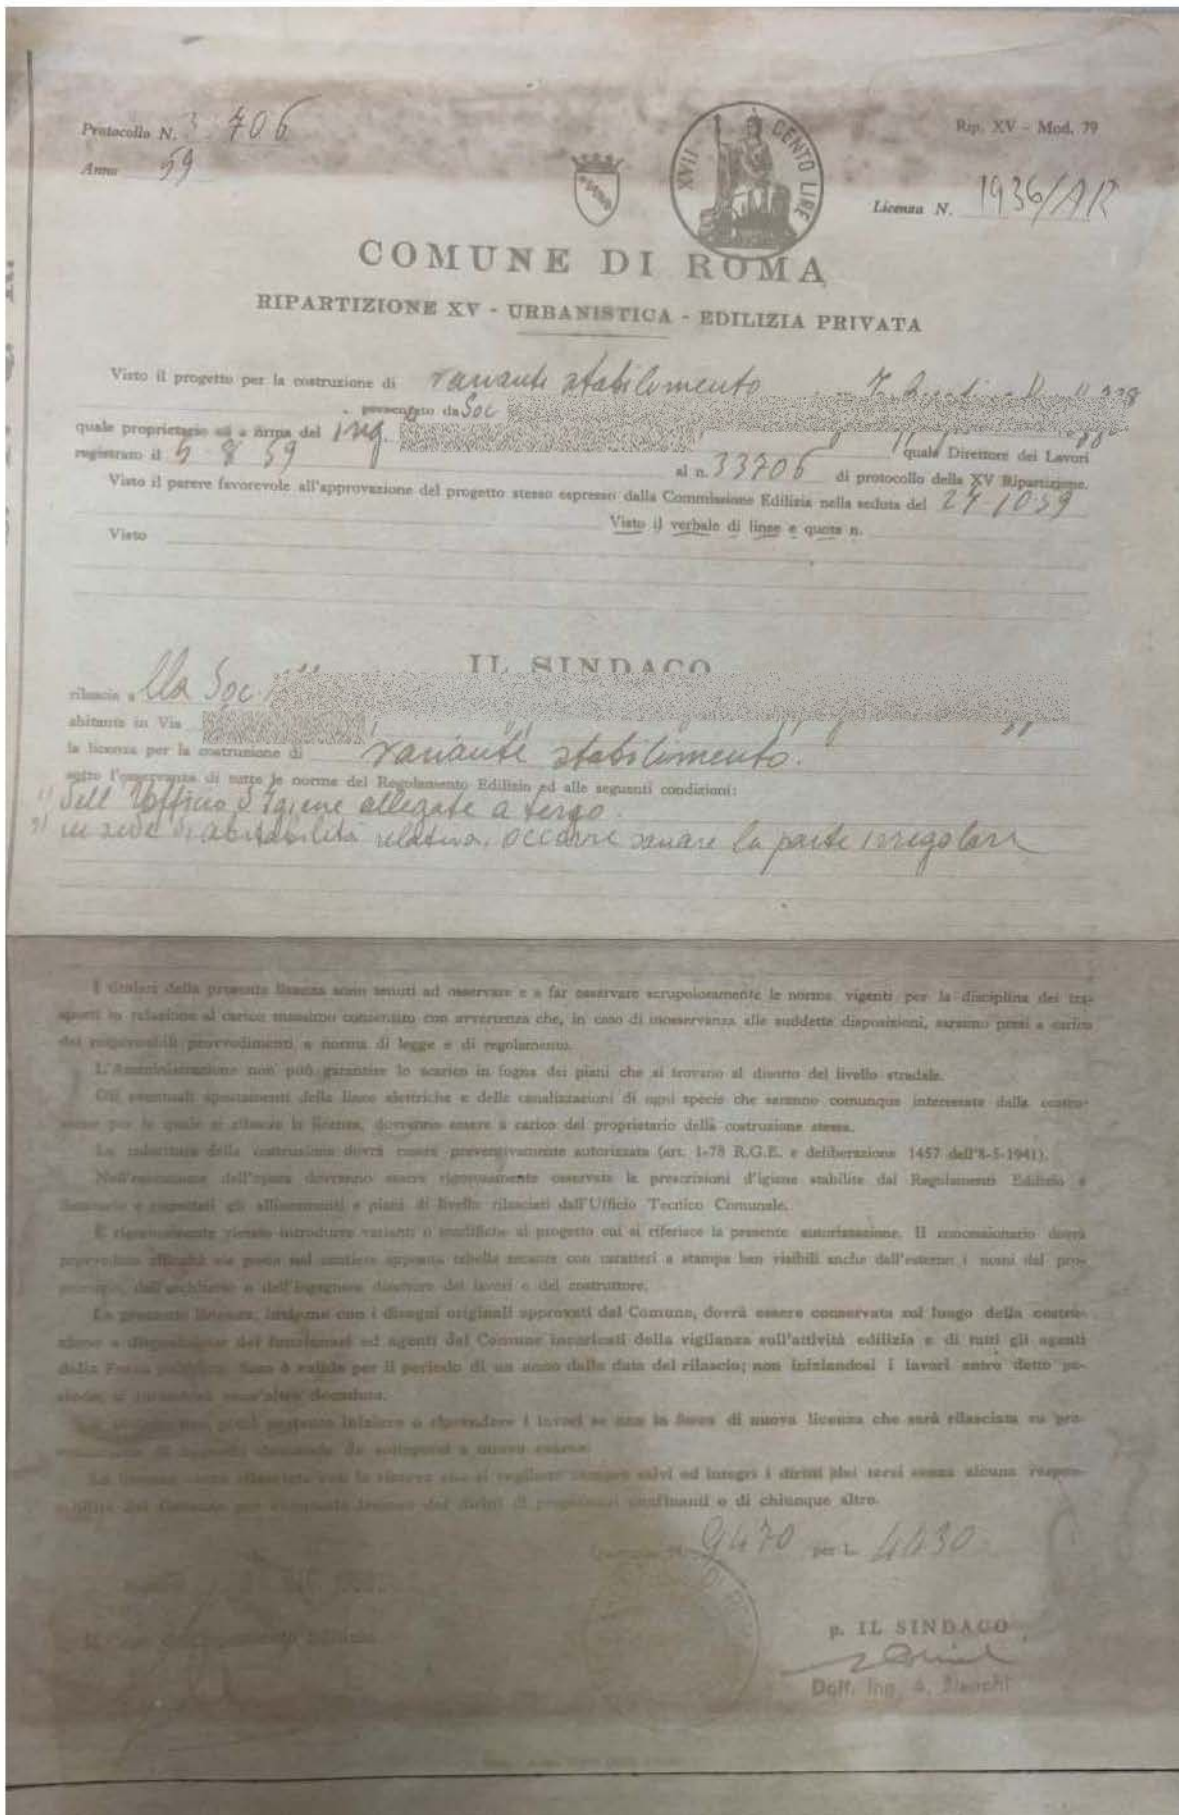 Protocollo N. 3 706
Rip. XV - Mod. 79
Anno 59
XVII CENTO LIRE
Licenza N. 1936/AR
COMUNE DI ROMA
RIPARTIZIONE XV - URBANISTICA - EDILIZIA PRIVATA
Visto il progetto per la costruzione di variante stabilimento
presentato da Soc
quale proprietario ed a firma del ing.
quale Direttore dei Lavori
registrato il 5 8 59 al n. 33706 di protocollo della XV Ripartizione.
Visto il parere favorevole all'approvazione del progetto stesso espresso dalla Commissione Edilizia nella seduta del 27-10-59
Visto il verbale di linee e quote n.
Visto
IL SINDACO
rilascia alla Soc.
abitante in Via
la licenza per la costruzione di variante stabilimento.
sotto l'osservanza di tutte le norme del Regolamento Edilizio ed alle seguenti condizioni:
1) dell'Ufficio d'Igiene allegate a tergo.
2) in sede di abitabilità relativa, occorre sanare la parte irregolare
I titolari della presente licenza sono tenuti ad osservare e a far osservare scrupolosamente le norme vigenti per la disciplina dei tra-
sporti in relazione al carico massimo consentito con avvertenza che, in caso di inosservanza alle suddette disposizioni, saranno presi a carico
dei responsabili provvedimenti a norma di legge e di regolamento.
L'Amministrazione non può garantire lo scarico in fogna dei piani che si trovano al disotto del livello stradale.
Gli eventuali spostamenti delle linee elettriche e delle canalizzazioni di ogni specie che saranno comunque interessate dalla costru-
zione per la quale si rilascia la licenza, dovranno essere a carico del proprietario della costruzione stessa.
La copertura della costruzione dovrà essere preventivamente autorizzata (art. 1-78 R.G.E. e deliberazione 1457 dell'8-5-1941).
Nell'esecuzione dell'opera dovranno essere rigorosamente osservate le prescrizioni d'igiene stabilite dai Regolamenti Edilizio e
Sanitario e rispettati gli allineamenti e piani di livello rilasciati dall'Ufficio Tecnico Comunale.
È rigorosamente vietato introdurre varianti o modifiche al progetto cui si riferisce la presente autorizzazione. Il concessionario dovrà
provvedere affinchè sia posta nel cantiere apposita tabella recante con caratteri a stampa ben visibili anche dall'esterno: i nomi del pro-
prietario, dell'architetto o dell'ingegnere direttore dei lavori e del costruttore.
La presente licenza, insieme con i disegni originali approvati dal Comune, dovrà essere conservata sul luogo della costru-
zione a disposizione dei funzionari ed agenti del Comune incaricati della vigilanza sull'attività edilizia e di tutti gli agenti
della Forza pubblica. Essa è valida per il periodo di un anno dalla data del rilascio; non iniziandosi i lavori entro detto pe-
riodo, si intenderà senz'altro decaduta.
potrà pertanto iniziare o riprendere i lavori se non in forza di nuova licenza che sarà rilasciata su pre-
sentazione di apposita domanda da sottoporsi a nuovo esame.
La licenza viene rilasciata con la riserva che si vogliono sempre salvi ed integri i diritti dei terzi senza alcuna respon-
sabilità del Comune per eventuale lesione dei diritti di proprietari confinanti o di chiunque altro.
9470 per L. 4430
p. IL SINDACO
Dott. Ing. A. Bianchi